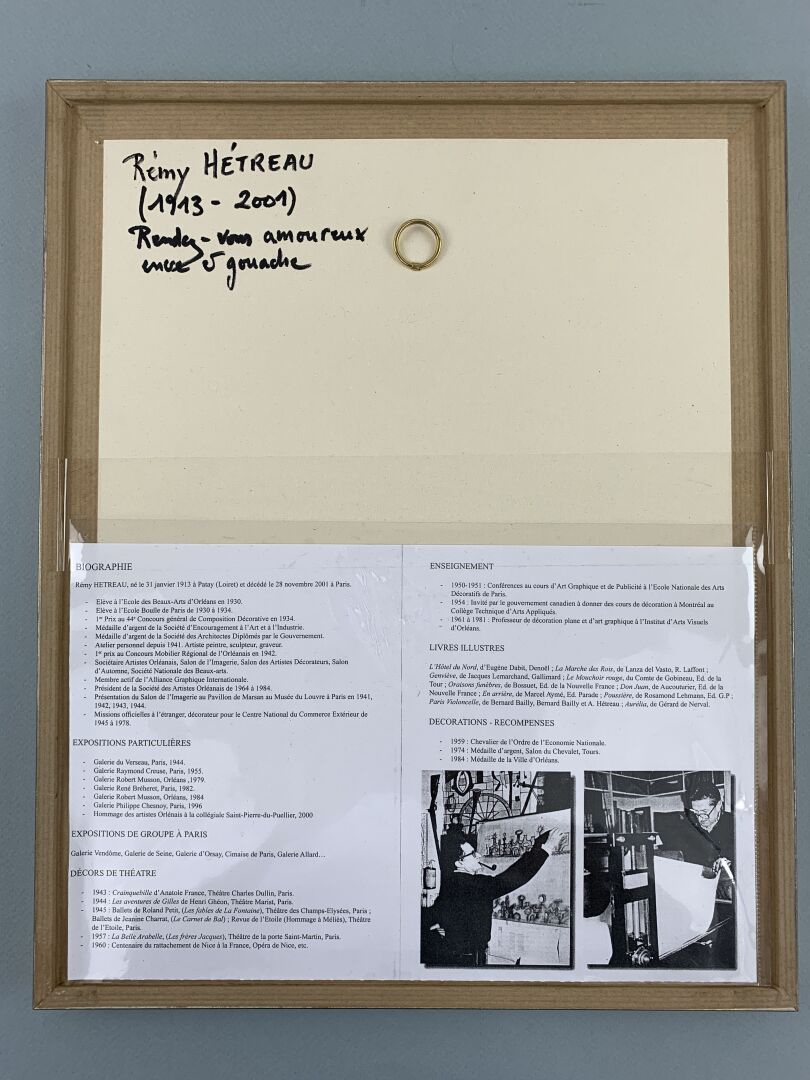 Rémy HÉTREAU
(1913 - 2001)
Rendez-vous amoureux
encre & gouache
BIOGRAPHIE
Rémy HETREAU, né le 31 janvier 1913 à Patay (Loiret) et décédé le 28 novembre 2001 à Paris.
- Elève à l'Ecole des Beaux-Arts d'Orléans en 1930.
- Elève à l'Ecole Boulle de Paris de 1930 à 1934.
- 1er Prix au 44e Concours général de Composition Décorative en 1934.
- Médaille d'argent de la Société d'Encouragement à l'Art et à l'Industrie.
- Médaille d'argent de la Société des Architectes Diplômés par le Gouvernement.
- Atelier personnel depuis 1941. Artiste peintre, sculpteur, graveur.
- 1er prix au Concours Mobilier Régional de l'Orléanais en 1942.
- Sociétaire Artistes Orléanais, Salon de l'Imagerie, Salon des Artistes Décorateurs, Salon
d'Automne, Société Nationale des Beaux-arts.
- Membre actif de l'Alliance Graphique Internationale.
- Président de la Société des Artistes Orléanais de 1964 à 1984.
- Présentation du Salon de l'Imagerie au Pavillon de Marsan au Musée du Louvre à Paris en 1941,
1942, 1943, 1944.
- Missions officielles à l'étranger, décorateur pour le Centre National du Commerce Extérieur de
1945 à 1978.
EXPOSITIONS PARTICULIÈRES
- Galerie du Verseau, Paris, 1944.
- Galerie Raymond Creuse, Paris, 1955.
- Galerie Robert Musson, Orléans ,1979.
- Galerie René Bréheret, Paris, 1982.
- Galerie Robert Musson, Orléans, 1984
- Galerie Philippe Chesnoy, Paris, 1996
- Hommage des artistes Orléanais à la collégiale Saint-Pierre-du-Puellier, 2000
EXPOSITIONS DE GROUPE À PARIS
Galerie Vendôme, Galerie de Seine, Galerie d'Orsay, Cimaise de Paris, Galerie Allard…
DÉCORS DE THÉATRE
- 1943 : Crainquebille d'Anatole France, Théâtre Charles Dullin, Paris.
- 1944 : Les aventures de Gilles de Henri Ghéon, Théâtre Marist, Paris.
- 1945 : Ballets de Roland Petit, (Les fables de La Fontaine), Théâtre des Champs-Elysées, Paris ;
Ballets de Jeanine Charrat, (Le Carnet de Bal) ; Revue de l'Etoile (Hommage à Méliès), Théâtre
de l'Etoile, Paris.
- 1957 : La Belle Arabelle, (Les frères Jacques), Théâtre de la porte Saint-Martin, Paris.
- 1960 : Centenaire du rattachement de Nice à la France, Opéra de Nice, etc.
ENSEIGNEMENT
- 1950-1951 : Conférences au cours d'Art Graphique et de Publicité à l'Ecole Nationale des Arts
Décoratifs de Paris.
- 1954 : Invité par le gouvernement canadien à donner des cours de décoration à Montréal au
Collège Technique d'Arts Appliqués.
- 1961 à 1981 : Professeur de décoration plane et d'art graphique à l'Institut d'Arts Visuels
d'Orléans.
LIVRES ILLUSTRES
L'Hôtel du Nord, d'Eugène Dabit, Denoël ; La Marche des Rois, de Lanza del Vasto, R. Laffont ;
Genviève, de Jacques Lemarchand, Gallimard ; Le Mouchoir rouge, du Comte de Gobineau, Ed. de la
Tour ; Oraisons funèbres, de Bossuet, Ed. de la Nouvelle France ; Don Juan, de Aucouturier, Ed. de la
Nouvelle France ; En arrière, de Marcel Aymé, Ed. Parade ; Poussière, de Rosamond Lehmann, Ed. G.P ;
Paris Violoncelle, de Bernard Bailly, Bernard Bailly et A. Hétreau ; Aurélia, de Gérard de Nerval.
DECORATIONS - RECOMPENSES
- 1959 : Chevalier de l'Ordre de l'Economie Nationale.
- 1974 : Médaille d'argent, Salon du Chevalet, Tours.
- 1984 : Médaille de la Ville d'Orléans.